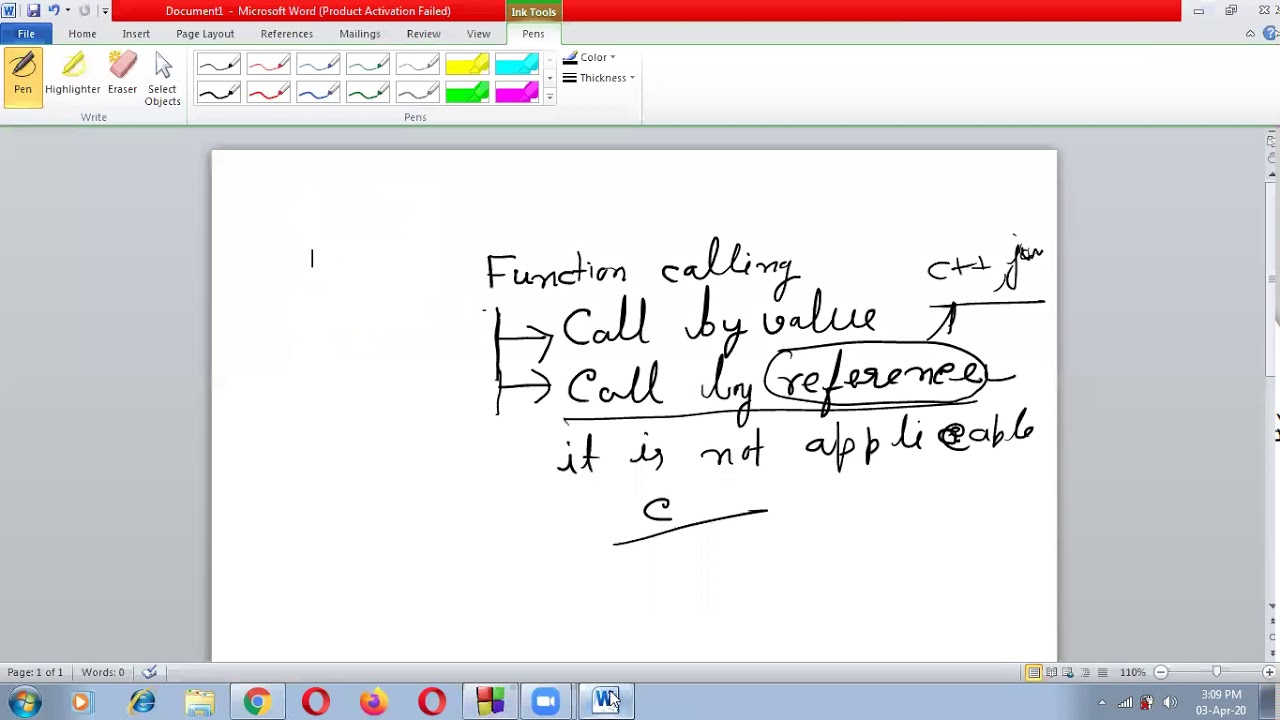 Document1 - Microsoft Word (Product Activation Failed)
Ink Tools
File Home Insert Page Layout References Mailings Review View Pens
Pen Highlighter Eraser Select Objects
Color
Thickness
Write
Pens
Function calling
c++,
Call by value
Call by reference
it is not applicable
C
Page: 1 of 1 Words: 0
110%
3:09 PM
03-Apr-20